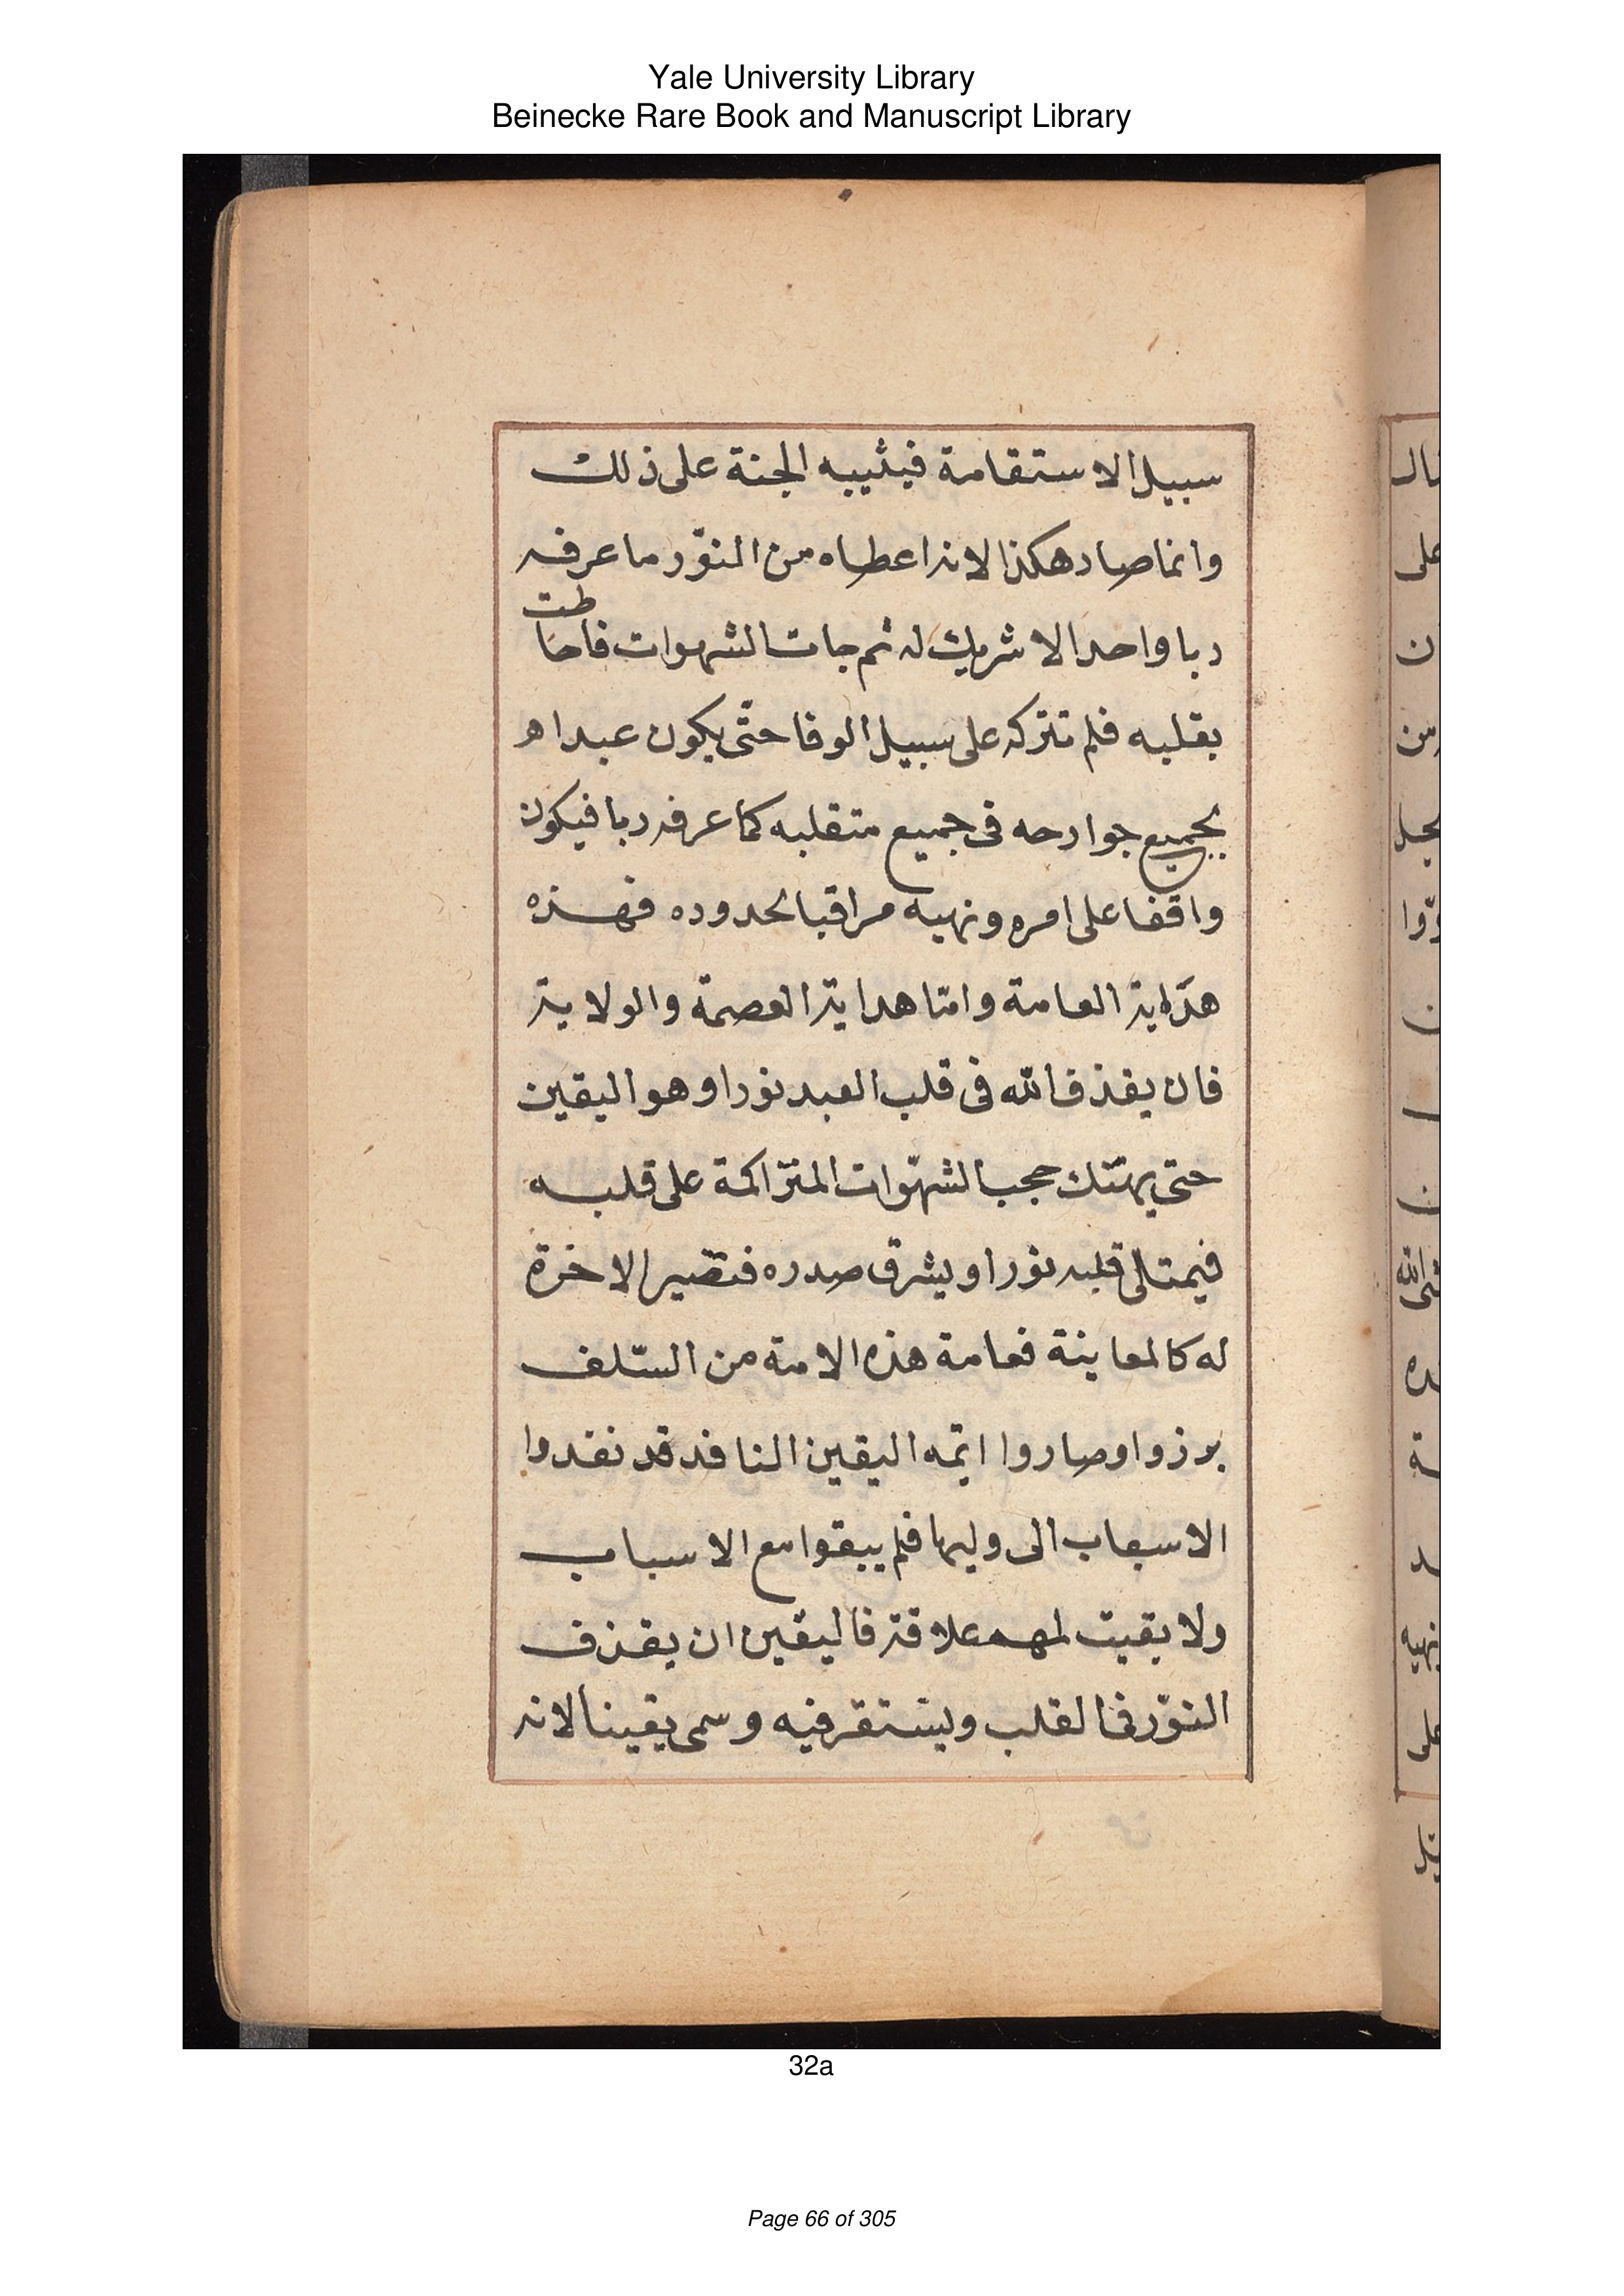 Yale University Library
Beinecke Rare Book and Manuscript Library
سبيل الاستقامة فيثيبه الجنة على ذلك
وانما صار هكذا لانه اعطاه من النوّر ما عرفه
ربا واحدا لا شريك له ثم جات الشهوات فاحاطت
بقلبه فلم تتركه على سبيل الوفا حتّى يكون عبدا
بجميع جوارحه فى جميع متقلبه كما عرفه ربا فيكون
واقفا على امره ونهيه مراقبا لحدوده فهذه
هداية العامة وامّا هداية العصمة والولاية
فان يقذف الله فى قلب العبد نورا وهو اليقين
حتى يهتك حجب الشهوات المتراكمة على قلبه
فيمتلى قلبه نورا ويشرق صدره فتصير الاخرة
له كالمعاينة فعامة هذه الامة من السّلف
برزوا وصاروا ايمّه اليقين النافد قد نفدوا
الاسباب الى وليها فلم يبقوا مع الاسباب
ولا بقيت لهم علاقة فاليقين ان يقذف
النوّر فى القلب ويستقر فيه وسمى يقينا لانه
32a
Page 66 of 305